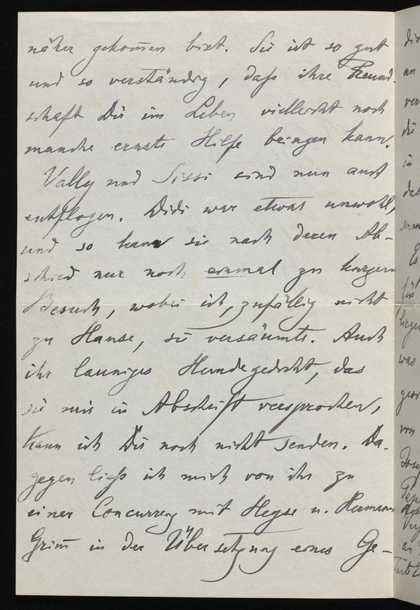 näher gekom̄en bist. Sie ist so gut
und so verständig, daß ihre Freund-
schaft Dir im Leben vielleicht noch
manche ernste Hilfe bringen kann.
Vally und Sissi sind nun auch
entflogen. Didi war etwas unwohl,
und so kam sie nach deren Ab-
schied nur noch einmal zu kurzem
Besuch, wobei ich, zufällig nicht
zu Hause, sie versäumte. Auch
ihr launiges Hundegedicht, das
sie mir in Abschrift versprochen,
kann ich Dir noch nicht senden. Da-
gegen ließ ich mich von ihr zu
einer Concurrenz mit Heyse u. Herman
Grimm in der Übersetzung eines Ge-